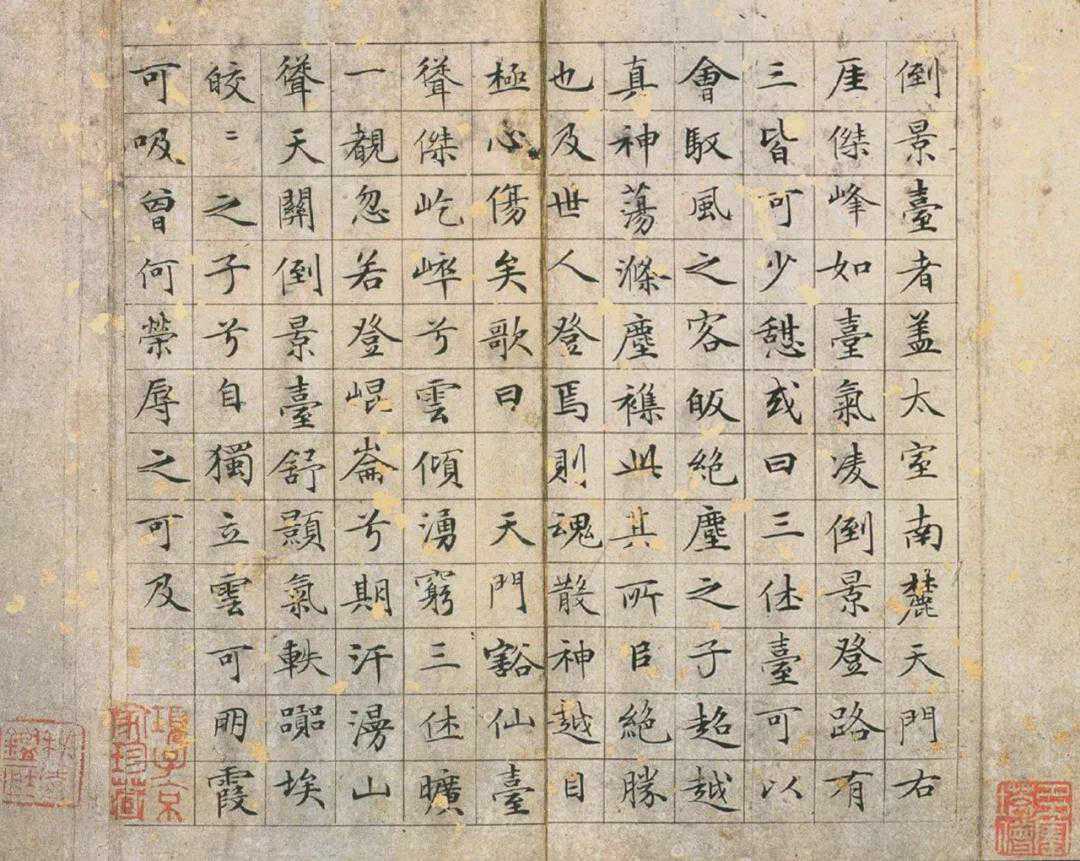 倒景臺者盖太室南麓天門右
厓傑峰如臺氣凌倒景登路有
三皆可少憇或曰三休臺可以
會馭風之客皈絶塵之子超越
真神蕩滌塵襍此其所㠯絶勝
也及世人登焉則魂散神越目
極心傷矣歌曰 天門豁仙臺
聳傑屹崒兮雲傾湧窮三休曠
一覩忽若登崐崙兮期汗漫山
聳天關倒景臺舒顥氣軼嚻埃
皎〻之子兮自獨立雲可朋霞
可吸曾何榮辱之可及
項子京家珍藏